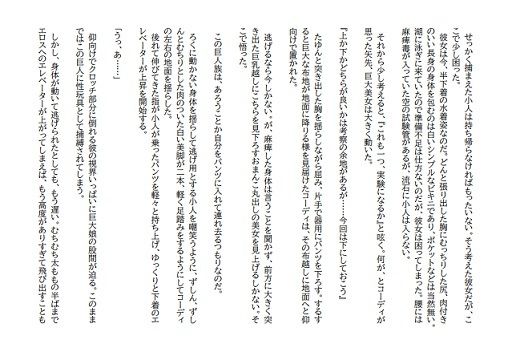 せっかく捕まえた小人は持ち帰らなければもったいない。そう考えた彼女だが、こ
こで少し困った。
彼女は今、半下着の水着姿なのだ。どんと張り出した胸にむっちりした尻、肉付き
のいい長身の身体を包むのは白いシンプルなビキニであり、ポケットなどは当然無い。
湖に泳ぎに来ていたので準備不足は仕方ないのだが、彼女は困ってしまった。腰には
麻痺毒が入っていた空の試験管があるが、流石に小人は入らない。
それから少し考えると、「これも一つ、実験になるか」と呟く。何が、とコーディが
思った矢先、巨大美女は大きく動いた。
『上か下かどちらが良いかは考察の余地があるが……今回は下にしておこう』
たゆんと突き出した胸を揺らしながら屈み、片手で器用にパンツを下ろす。するす
ると巨大な布地が地面に降りる様を見届けたコーディは、その布越しに地面へと仰
向けで置かれた。
逃げるなら今しかない。が、麻痺した身体は言うことを聞かず、前方に大きく突
き出た巨乳越しにこちらを見下ろすおまんこ丸出しの美女を見上げるしかない。そ
こで悟った。
この巨人族は、あろうことか自分をパンツに入れて連れ去るつもりなのだ。
ろくに動かない身体を揺らして逃げ用とする小人を嘲笑うように、ずしん、ずし
んとむちりとした肉のついた白い美脚が二本、軽く足踏みをするようにしてコーディ
の左右の地面を揺らした。
後れて伸びてきた指が小人が乗ったパンツを軽々と持ち上げ、ゆっくりと下着のエ
レベーターが上昇を開始する。
「うっ、あ……」
仰向けでクロッチ部分に倒れる彼の視界いっぱいに巨大娘の股間が迫る。このまま
ではこの巨人に性玩具として捕縛されてしまう。
しかし、身体が動いて逃げられたとしても、もう遅い。むちむち太ももの半ばまで
エロスへのエレベーターが上がってしまえば、もう高度がありすぎて飛び出すことも